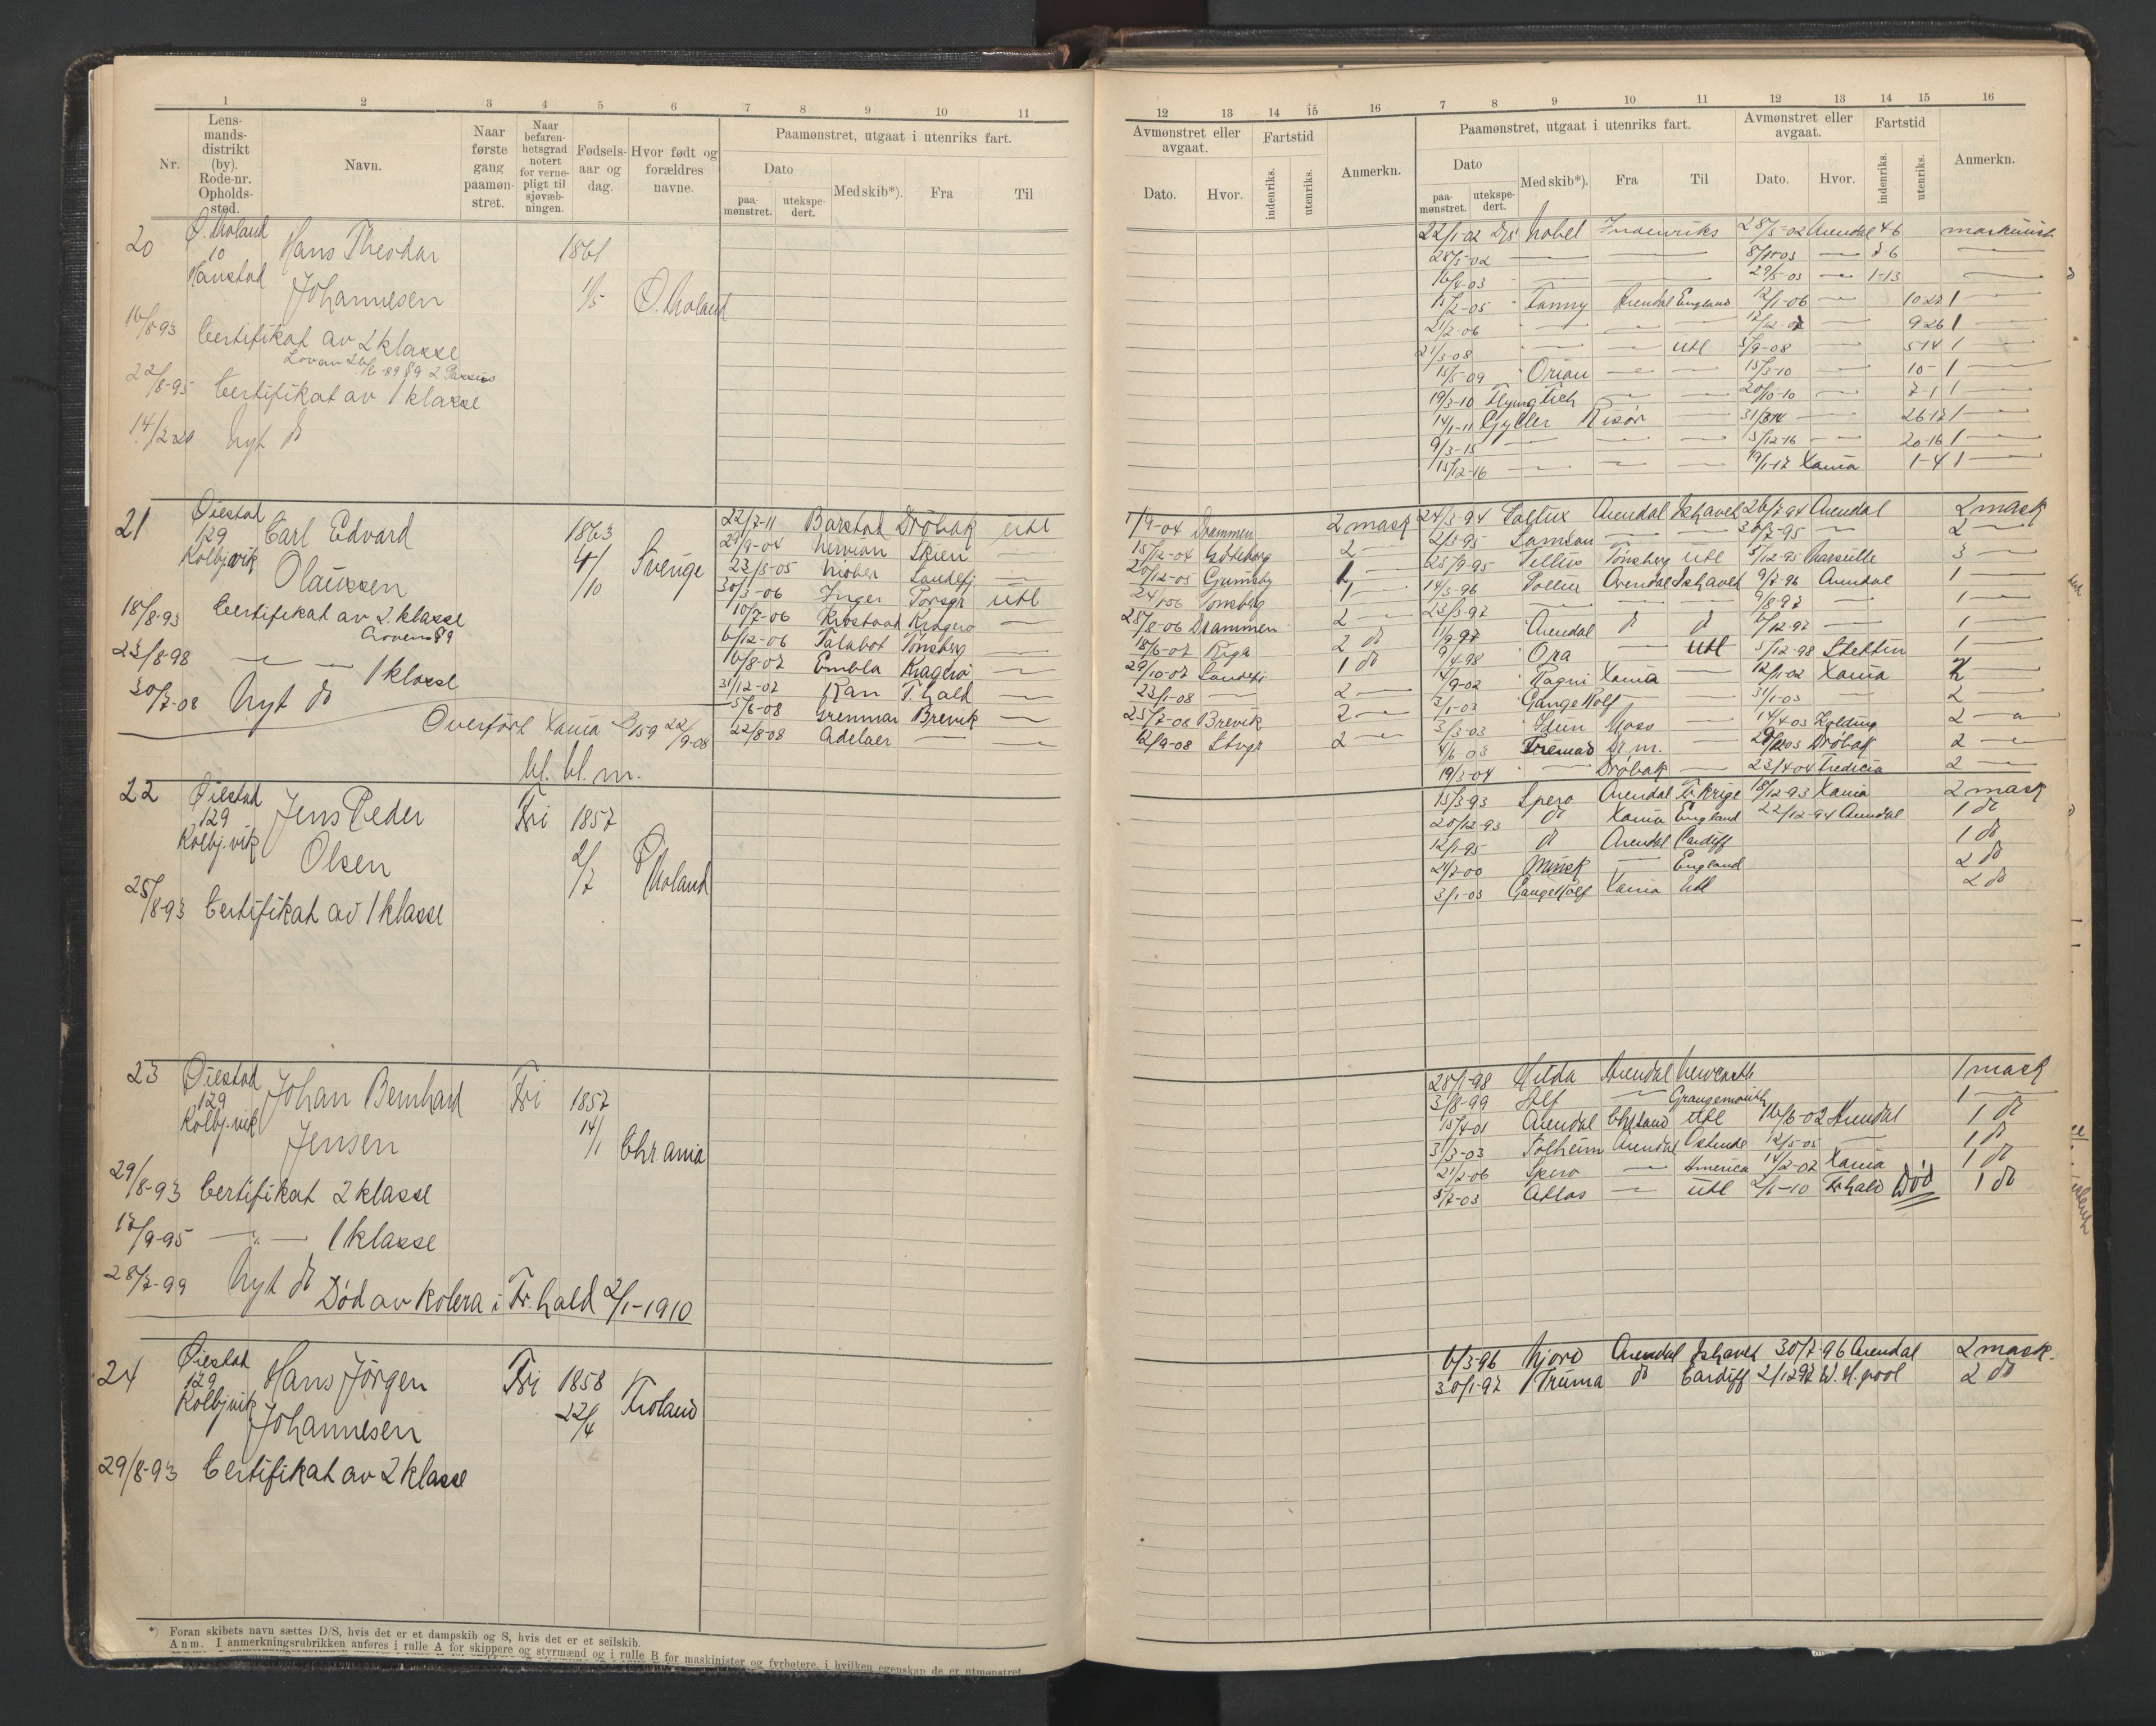 1 2 3 4 5 6 7 8 9 10 11
Nr.
Lens-
mands-
distrikt
(by).
Rode-nr.
Opholds-
sted.
Navn.
Naar
første
gang
paamøn-
stret.
Naar
befaren-
hetsgrad
notert
for verne-
pligt til
sjøvæb-
ningen.
Fødsels-
aar og
dag.
Hvor født og
forældres
navne.
Paamønstret, utgaat i utenriks fart.
Dato
paa-
mønstret.
utekspe-
dert.
Med skib*).
Fra
Til
20 Ø. Moland Hans Theodor 1861
10
Johannesen 1/5 Ø. Moland
16/8-93 Certifikat av 2 klasse
22/8-95 Certifikat av 1 klasse
14/2-20 Nyt do
21 Øiestad Carl Edvard 1863
129
Kolbj.vik Olaussen 4/10 Sverige
18/8-93 Certifikat av 2. klasse
23/8-98 — — 1 klasse
30/7-08 Nyt do
Overført Xania 22/9-08
kl. kl. m.
22/7-11 Barstad Drøbak Utl
29/9-04 Skien —
23/5-05 Niobe Sandefj —
30/3-06 Inger Porsgr Utl
10/7-06 Kragerø —
6/12-06 Talabot Tønsberg —
16/8-07 Embla Kragerø —
31/12-07 Ran Fhald —
5/6-08 Grenmar Brevik —
22/8-08 Adelaer — —
22 Øiestad Jens Peder Fri 1857
129
Kolbj.vik Olsen 2/7 Ø Moland
25/8-93 Certifikat av 1 klasse
23 Øiestad Johan Bernhard Fri 1857
129
Kolbj.vik Jensen 14/1 Chrania
29/8-93 Certifikat 2 klasse
17/9-95 — " — 1 klasse
28/7-99 Nyt do
Død av kolera i Fr.hald 2/1-1910
24 Øiestad Hans Jörgen Fri 1858
129
Kolbjvik Johannesen 22/4 Froland
29/8-93 Certifikat av 2 klasse
*) Foran skibets navn sættes D/S, hvis det er et dampskib og S, hvis det er et seilskib.
Anm. I anmerkningsrubrikken anføres i rulle A for skippere og styrmænd og i rulle B for maskinister og fyrbøtere, i hvilken egenskap de er utmønstret
12 13 14 15 16 7 8 9 10 11 12 13 14 15 16
Avmønstret eller
avgaat.
Dato. Hvor.
Fartstid
indenriks.
utenriks.
Anmerkn.
Paamønstret, utgaat i utenriks fart.
Dato
paa-
mønstret.
utekspe-
dert.
Med skib*).
Fra
Til
Avmønstret eller
avgaat.
Dato. Hvor.
Fartstid
indenriks.
utenriks.
Anmerkn.
22/1-02 D/S Nobel Indenriks 28/5-02 Arendal 4-6 maskinist
28/5-02 — — —
16/4-03 — 29/5-03 — 1-13 —
15/2-05 " Fanny Arendal England 12/1-06 — 10-27 1 —
21/2-06 — — — — 9-26 1 —
21/3-08 — — Utl 5/9-08 — 5-14 1 —
15/5-09 " Orion — — 15/3-10 — 10- 1 —
19/3-10 — — 20/10-10 — 7-1 1 —
14/1-11 Gyller Risør — — 26-17 1 —
9/3-15 — — — 5/12-16 — 20-16 1 —
15/12-16 — — — 19/1-17 Xania 1-4 1 —
1/9-04 Drammen 2 mask
15/2-04 Göteborg 2 —
20/12-05 Grimsby 1 —
Tonsberg 1 —
28/8-06 Drammen 2 —
18/6-07 Riga 2 do
29/10-07 Sandefj 1 do
23/1-08 — 2 —
25/7-08 Brevik 2 —
12/9-08 Stvgr 2 —
24/3-94 Pollux Arendal Ishavet 26/7-94 Arendal 2 mask
2/3-95 Samson — — — 2 —
25/9-95 Tellus Tønsberg Utl 5/12-95 3 —
14/3-96 Pollux Arendal Ishavet 9/7-96 Arendal 1 —
23/3-97 — — — 9/8-97 — 1 —
11/9-97 Arendal do do 6/12-97 — 1 —
9/4-98 Ora — Utl 5/12-98 Stettin 1 —
Ragni Xania — 12/11-02 Xania 2 —
2/1-03 GangeRolf — — 31/1-03 — 2 —
3/3-03 Idun Moss — 14/4-03 Kolding 2 —
4/6 03 Fremad Dr.m. — Drøbak 2 —
19/3-04 " — Drøbak — 23/4 04 Fredicia 2 —
15/3-93 Spero Arendal Frkrige 18/12-93 Xania 2 mask
20/12-93 do Xania England 22/12-94 Arendal 1 do
12/1-95 do Arendal Cardiff 1 do
Minsk — England 2 do
2/1-03 GangeRolf Xania Utl 2 do
28/1-98 Hilda Arendal Newcastle 1 mask
3/8-99 Alf — Grangemouth 1 —
15/4-01 Arendal Chrsand Utl 16/6-02 Arendal 1 do
3/3-03 Solheim Arendal Ostende 12/5-05 — 1 do
21/2-06 Spero — America 14/2-07 Xania 1 do
Atlas — Utl 2/1-10 Frhald Død 1 do
6/3-96 Njord Arendal Ishavet 30/7-96 Arendal 2 mask.
30/1-97 Truma do Cardiff 2/12 97 W.H.pool 2 do